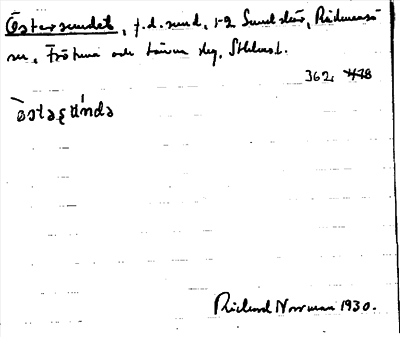 Östersundet, f.d. sund, 1-2 Sundskär, Rådmansö
sn, Frötuna och Länna skg, Sthlms l.
362, 448
Richard Norrman 1930.